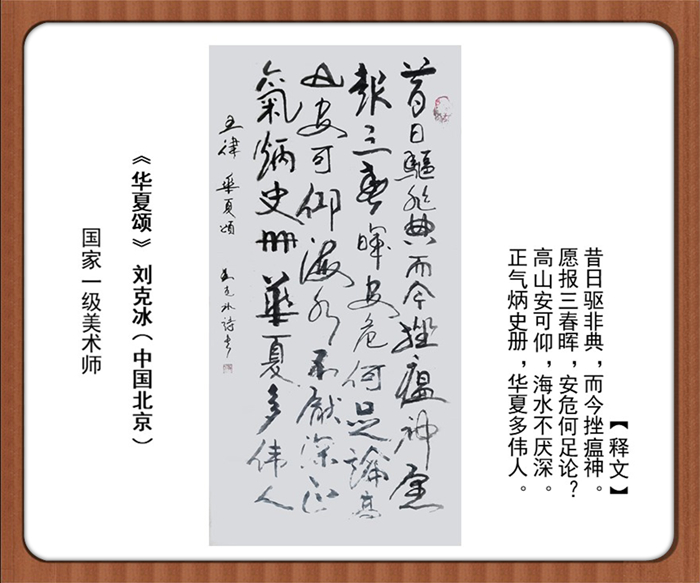 【释文】
昔日驱非典，而今挫瘟神。
愿报三春晖，安危何足论？
高山安可仰，海水不厌深。
正气炳史册，华夏多伟人。
昔日驅非典而今挫瘟神愿
報三春暉安危何足論高
山安可仰海水不厭深正
氣炳史册華夏多伟人
五律 華夏頌 刘克冰诗书
《华夏颂》 刘克冰（中国北京）
国家一级美术师